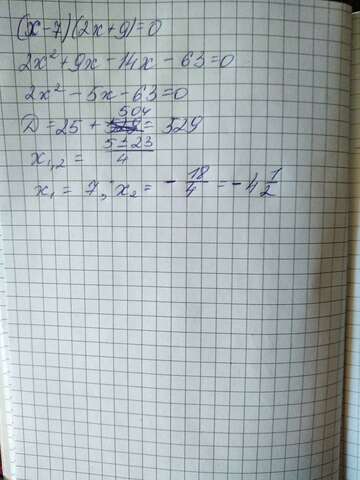 (x-7)(2x+9)=0
2x²+9x-14x-63=0
2x²-5x-63=0
D=25+504=529
x₁,₂=(5±23)/4
x₁=7, x₂=-18/4=-4 1/2